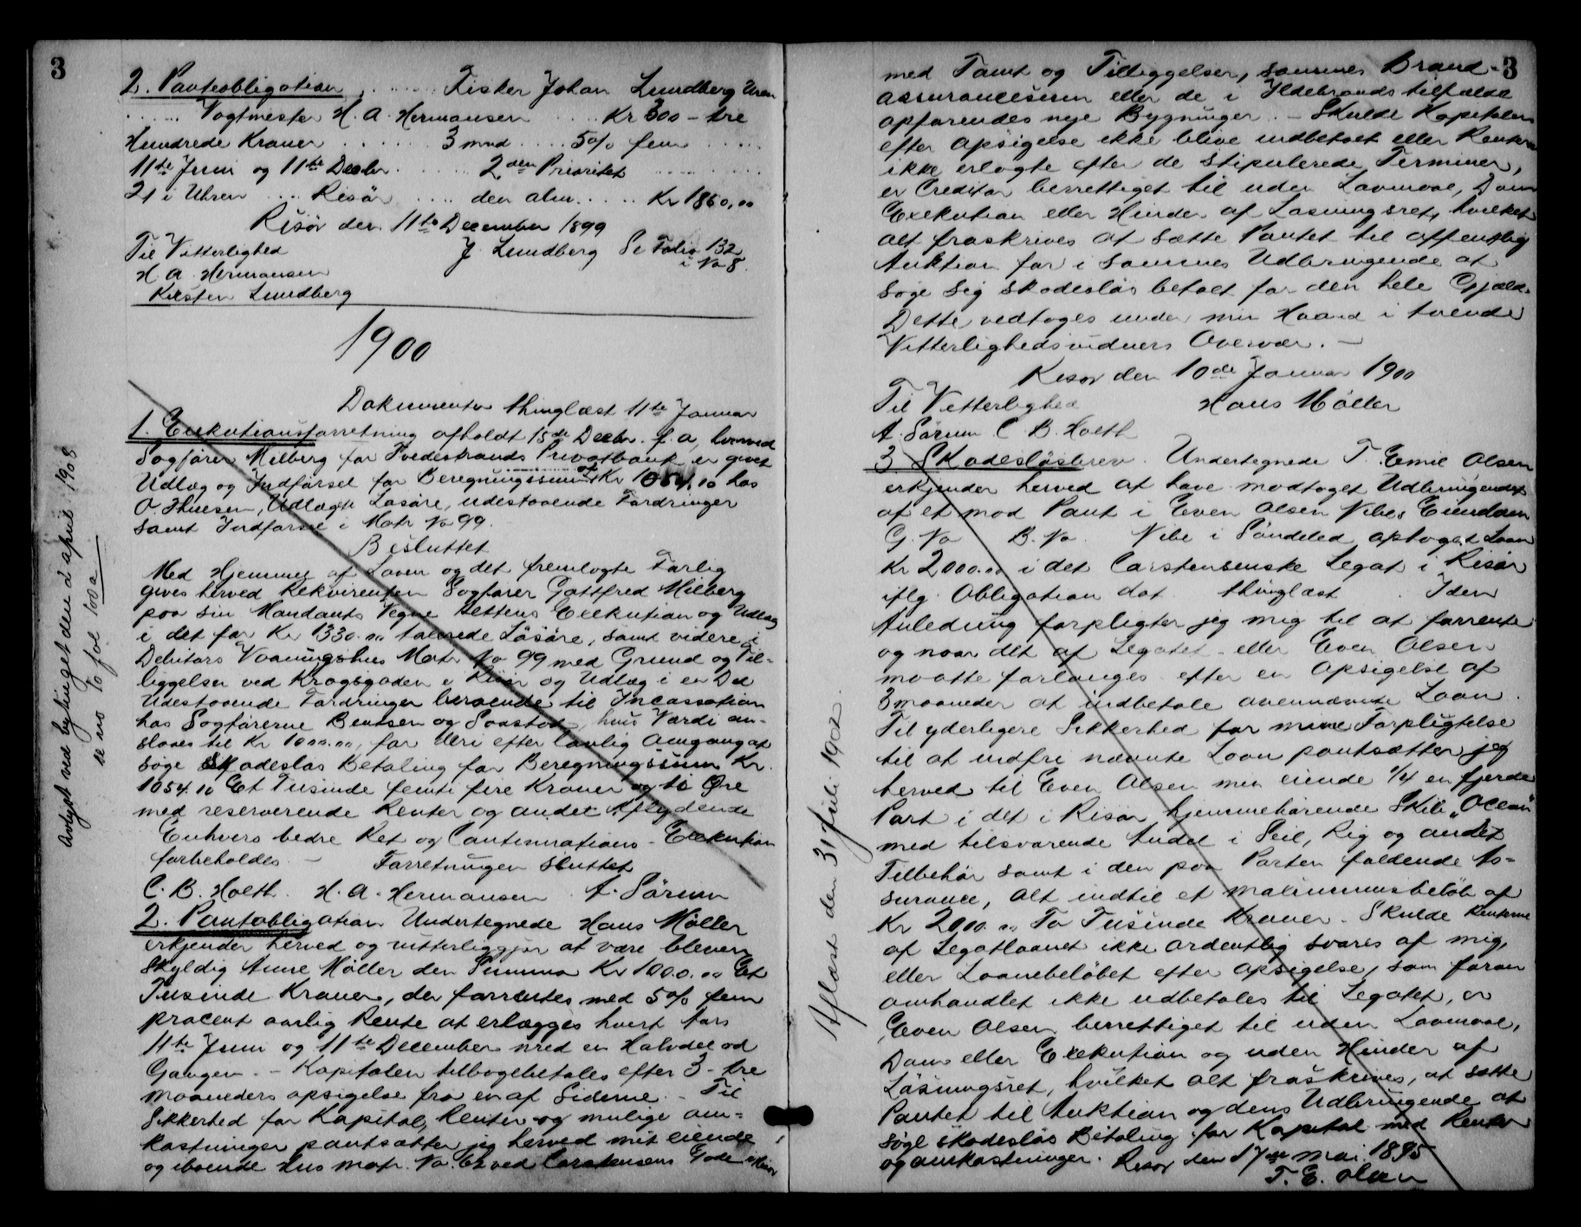 3
2. Panteobligation, ...... Fisker Johan Lundberg Uren
...... Vogtmester H. A. Hermansen .... Kr 300 - tre
Hundrede Kroner ...... 3 mnd .... 5% fem .....
11te Juni og 11te Decbr ...... 2den Prioritet ......
21 i Uhren .... Risør .... den alm ..... Kr 1860,00
Risør den 11te December 1899
Til Vitterlighed J. Lundberg Se Folio 132
i No 8.
H. A. Hermansen
Kirsten Lundberg
1900
Dokumenter thinglæst 11te Januar
1. Exekutionsforretning afholdt 15de Decbr. f. a. hvorved
Sagfører Milberg for Tvedestrands Privatbank er givet
Udlæg og Indførsel for Beregningssum af Kr 1054.10 hos
O. Thuesen, Udlagte Løsøre, udestaaende Fordringer
samt Indførsel i Matr No 99.
Besluttet
Med Hjemmel af Loven og det fremlagte Forlig
gives herved Rekvirenten Sagfører Gottfred Milberg
paa sin Mandants Vegne Rettens Exekution og Udlæg
i det for Kr 1330.00 taxerede Løsøre, samt videre i
Debitors Vaaningshus Matr No 99 med Grund og Til-
liggelser ved Kragsgaden i Risør og Udlæg i en Del
Udestaaende Fordringer beroende til Incassation
hos Sagførerne Bentsen og Soastad, hvis Værdi an-
slaaes til Kr 1000.00, for deri efter lovlig Omgang at
søge Skadesløs Betaling for Beregningssum Kr.
1054.10 Et Tusinde femti fire Kroner og ti Øre
med reserverende Renter og andet Aflydende
Enhvers bedre Ret og Continuations-Exekution
forbeholdes - Forretningen sluttet
C. B. Holth. H. A. Hermansen A. Sørum
2. Pantobligation Undertegnede Hans Møller
erkjender herved og vitterliggjør at være bleven
skyldig Anne Møller den Summa Kr 1000.00 Et
Tusinde Kroner, der forrentes med 5% fem
procent aarlig Rente at erlægges hvert Aars
11te Juni og 11te December med en Halvdel ad
Gangen. - Kapitalen tilbagebetales efter 3 - tre
Maaneders opsigelse fra en af Siderne. - Til
Sikkerhed for Kapital, Renter og mulige om-
kostninger pantsætter jeg herved mit eiende
og iboende Hus matr. No ved Carstensens Gade i Risør
Avlyst ved byfinget den 2 april 1908
se no 10 fol 100 a
3
med Tomt og Tilliggelser, sammes Brand-
assurancesum eller de i Ildebrands tilfælde
opførendes nye Bygninger. - Skulde Kapitalen
efter Opsigelse ikke blive indbetalt eller Renterne
ikke erlagte efter de stipulerede Terminer,
er Creditor berettiget til uden Lovmaal, Dom
Exekution eller Hinder af Løsningsret, hvilket
alt fraskrives at sætte Pantet til offentlig
Auktion for i sammes Udbringende at
søge sig skadesløs betalt for den hele Gjæld.
Dette vedtages under min Haand i tvende
Vitterlighedsvidners Overvær. -
Risør den 10de Januar 1900
Til Vitterlighed Hans Møller
A. Sørum C. B. Holth
3 Skadesløsbrev. Undertegnede T. Emil Olsen
erkjender herved at have modtaget Udbringendet
af et mod Pant i Even Olsen Vibes Eiendom
G. No B. No Vibe i Søndeled optaget Laan
Kr 2000.00 i det Carstensenske Legat i Risør
iflg. Obligation dat. thinglæst . I den
Anledning forpligter jeg mig til at forrente
og naar det af Legatet eller Even Olsen
maatte forlanges efter en Opsigelse af
3 maaneder at indbetale ovennævnte Laan.
Til yderligere Sikkerhed for mine Forpligtelse
til at indfri nævnte Laan pantsætter jeg
herved til Even Olsen min eiende 1/4 en fjerde
Part i det i Risør hjemmehørende Skib "Ocean"
med tilsvarende Andel i Seil, Rig og andet
Tilbehør samt i den paa Parten faldende As-
surance, Alt indtil et maximumsbeløb af
Kr 2000.00 To Tusinde Kroner. - Skulde Renterne
af Legatlaanet ikke ordentlig svares af mig,
eller Laanebeløbet efter Opsigelse, som foran
omhandlet ikke udbetales til Legatet, er
Even Olsen berettiget til uden Lovmaal,
Dom eller Exekution og uden Hinder af
Løsningsret, hvilket Alt fraskrives, at sætte
Pantet til Auktion og dens Udbringende at
søge skadesløs Betaling for Kapital med Renter
og omkostninger. Risør den 17de Mai 1895
T. E. Olsen
Aflæst den 31 Juli 1902.